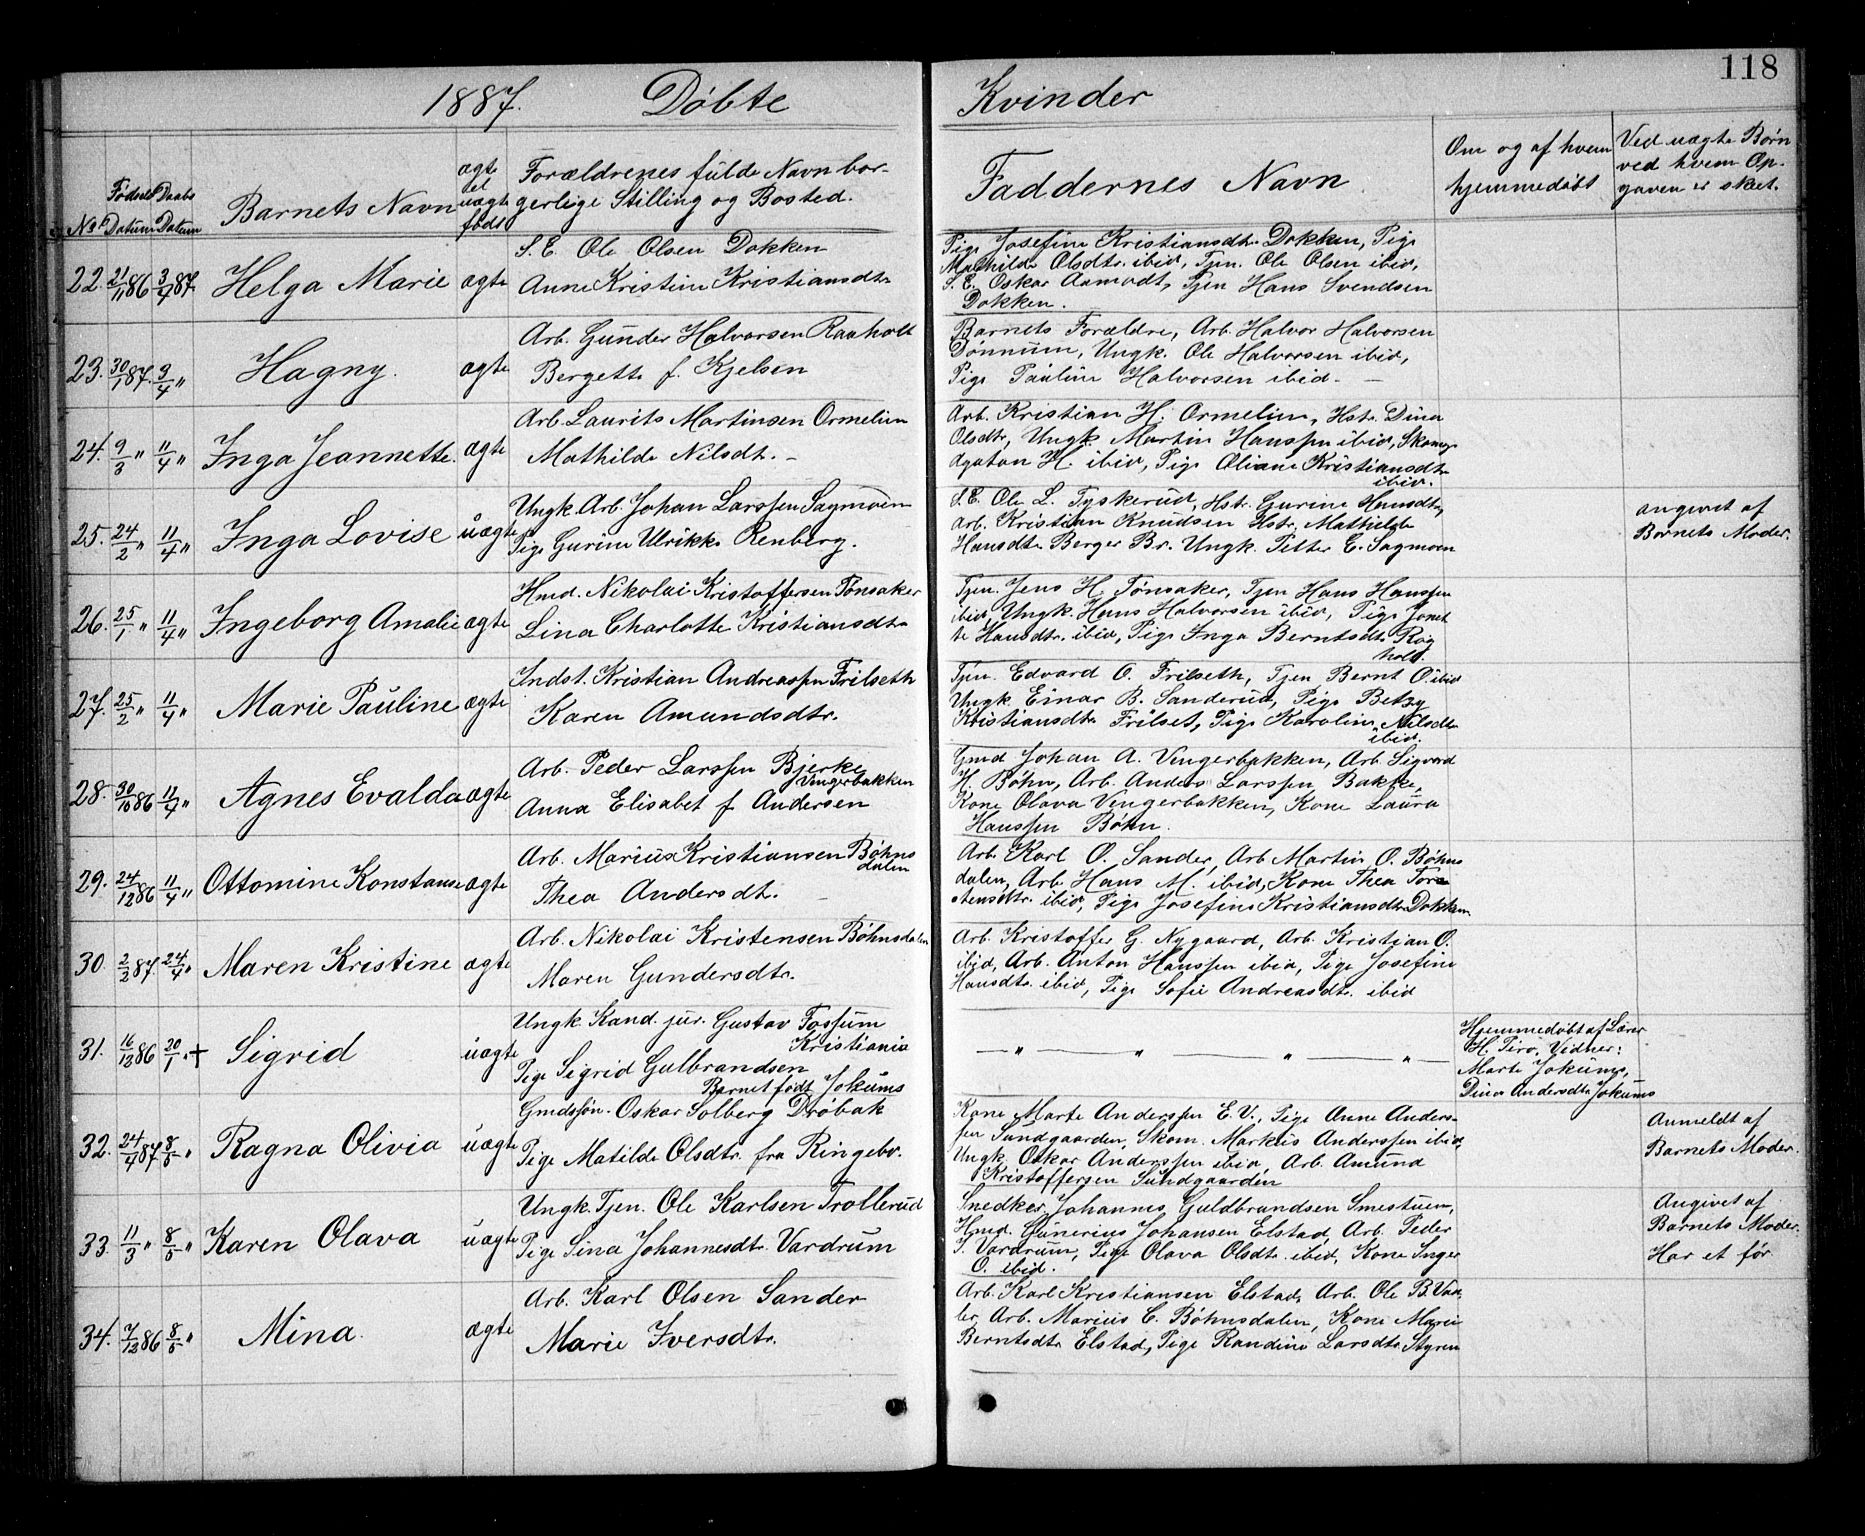 118
1887. Döbte Kvinder
No Fødsels Datum Daabs Datum Barnets Navn ægte el uægte født Forældrenes fulde Navn borgerlige Stilling og Bosted.
Faddernes Navn
Om og af hvem hjemmedøbt
Ved uægte Børn ved hvem Opgaven er skeet.
22. 21/11 86 3/4 87. Helga Marie ægte
S. E. Ole Olsen Dokken
Anne Kristine Kristiansdtr
Pige Josefine Kristiansdtr. Dokken, Pige
Mathilde Olsdtr. ibid, Tjen. Ole Olsen ibid,
S. E. Oskar Aamodt, Tjen Hans Svendsen
Dokken.
23. 30/1 87. 9/4 " Hagny. ægte
Arb. Gunder Halvorsen Raaholt
Bergette f. Kjelsen
Barnets Forældre, Arb. Halvor Halvorsen
Dönnum, Ungk. Ole Halvorsen ibid,
Pige Pauline Halvorsen ibid. —
24. 9/3 " 11/4 " Inga Jeannette. ægte
Arb. Laurits Martinsen Ormelien
Mathilde Nilsdt. –
Arb. Kristian H. Ormelien, Hstr. Dina
Olsdtr, Ungk. Martin Hanssen ibid, Skomg
Agaton H. ibid, Pige Oliane Kristiansdtr
ibid.
25. 24/2 " 11/4 " Inga Lovise uægte
Ungk. Arb. Johan Larssen Sagmoen
Pige Gurine Ulrikke Renberg.
S. E. Ole L. Tyskerud, Hstr. Gurine Hansdtr,
Arb. Kristian Knudsen Hstr, Mathilde
Hansdtr Berger Br. Ungk. Petter E. Sagmoen
angivet af
Barnets Moder.
26. 25/1 " 11/4 " Ingeborg Amalie ægte
Hmd. Nikolai Kristoffersen Tönsaker
Lina Charlotte Kristiansdtr
Tjen. Jens H. Tönsaker, Tjen Hans Hanssen
ibid, Ungk. Hans Halvorsen ibid, Pige Janet
te Hansdtr. ibid, Pige Inga Berntsdtr Rag
hold.
27. 25/2 " 11/4 " Marie Pauline ægte
Indst. Kristian Andreassen Frilseth
Karen Amundsdtr.
Tjen. Edvard O. Frilseth, Tjen Bernt O. ibid
Ungk Einar B. Sanderud, Pige Betzy
Kristiansdtr Frilset, Pige Karoline Nilsdtr
ibid.
28. 30/10 86 11/4 " Agnes Evalda ægte
Arb. Peder Larssen Bjerke
Vingerbakken
Anna Elisabet f Andersen
Gmd Johan A. Vingerbakken, Arb. Sigvard
H. Böhn, Arb. Anders Larssen Bakke,
Kone Olava Vingerbakken, Kone Laura
Hanssen Böhn.
29. 24/12 86 11/4 " Ottomine Konstanse ægte
Arb. Marius Kristiansen Böhns
dalen
Thea Andersdt.
Arb. Karl O. Sander, Arb Martin O. Böhns
dalen, Arb. Hans M. ibid, Kone Thea Tor
stensdtr. ibid, Pige Josefine Kristiansdtr Dokken
30. 2/2 87. 24/4 " Maren Kristine ægte
Arb. Nikolai Kristensen Böhnsdalen
Maren Gundersdtr.
Arb. Kristoffer G. Nygaard, Arb. Kristian O.
ibid, Arb. Anton Hanssen ibid, Pige Josefine
Hansdtr. ibid, Pige Sofie Andreasdtr. ibid
31. 16/12 86 20/1 " + Sigrid uægte
Ungk. Kand. jur. Gustav Fossum
Kristiania
Pige Sigrid Gulbrandsen
Barnet født Jokums
— " — " " — " —
Hjemmedøbt af Lærer
H. Tiro. Vidner:
Marte Jokums,
Dina Andersdtr Jokums
32. 24/4 87 8/5 " Ragna Olivia uægte
Gmdssön. Oskar Solberg Dröbak
Pige Matilde Olsdtr. fra Ringebo.
Kone Marte Anderssen E. V., Pige Anne Anders-
sen Sundgaarden, Skom. Markus Anderssen ibid,
Ungk. Oskar Anderssen ibid, Arb. Amund
Kristoffersen Sundgaarden
Anmeldt af
Barnets Moder.
33. 11/3 " 8/5 " Karen Olava uægte
Ungk. Tjen. Ole Karlsen Trollerud
Pige Sina Johannesdt. Vardrum
Snedker Johannes Guldbrandsen Smestuen,
Hmd. Gunerius Johansen Elstad, Arb. Peder
J. Vardrum, Pige Olava Olsdtr. ibid, Kone Inger
O. ibid.
Angivet af
Barnets Moder.
Har et før
34. 7/12 86 8/5 " Mina. ægte
Arb. Karl Olsen Sander
Marie Iversdtr.
Arb. Karl Kristiansen Elstad, Arb. Ole B. Vas
ler, Arb. Marius C. Böhnsdalen, Kone Marie
Berntsdtr Elstad, Pige Randine Larsdtr. Styren